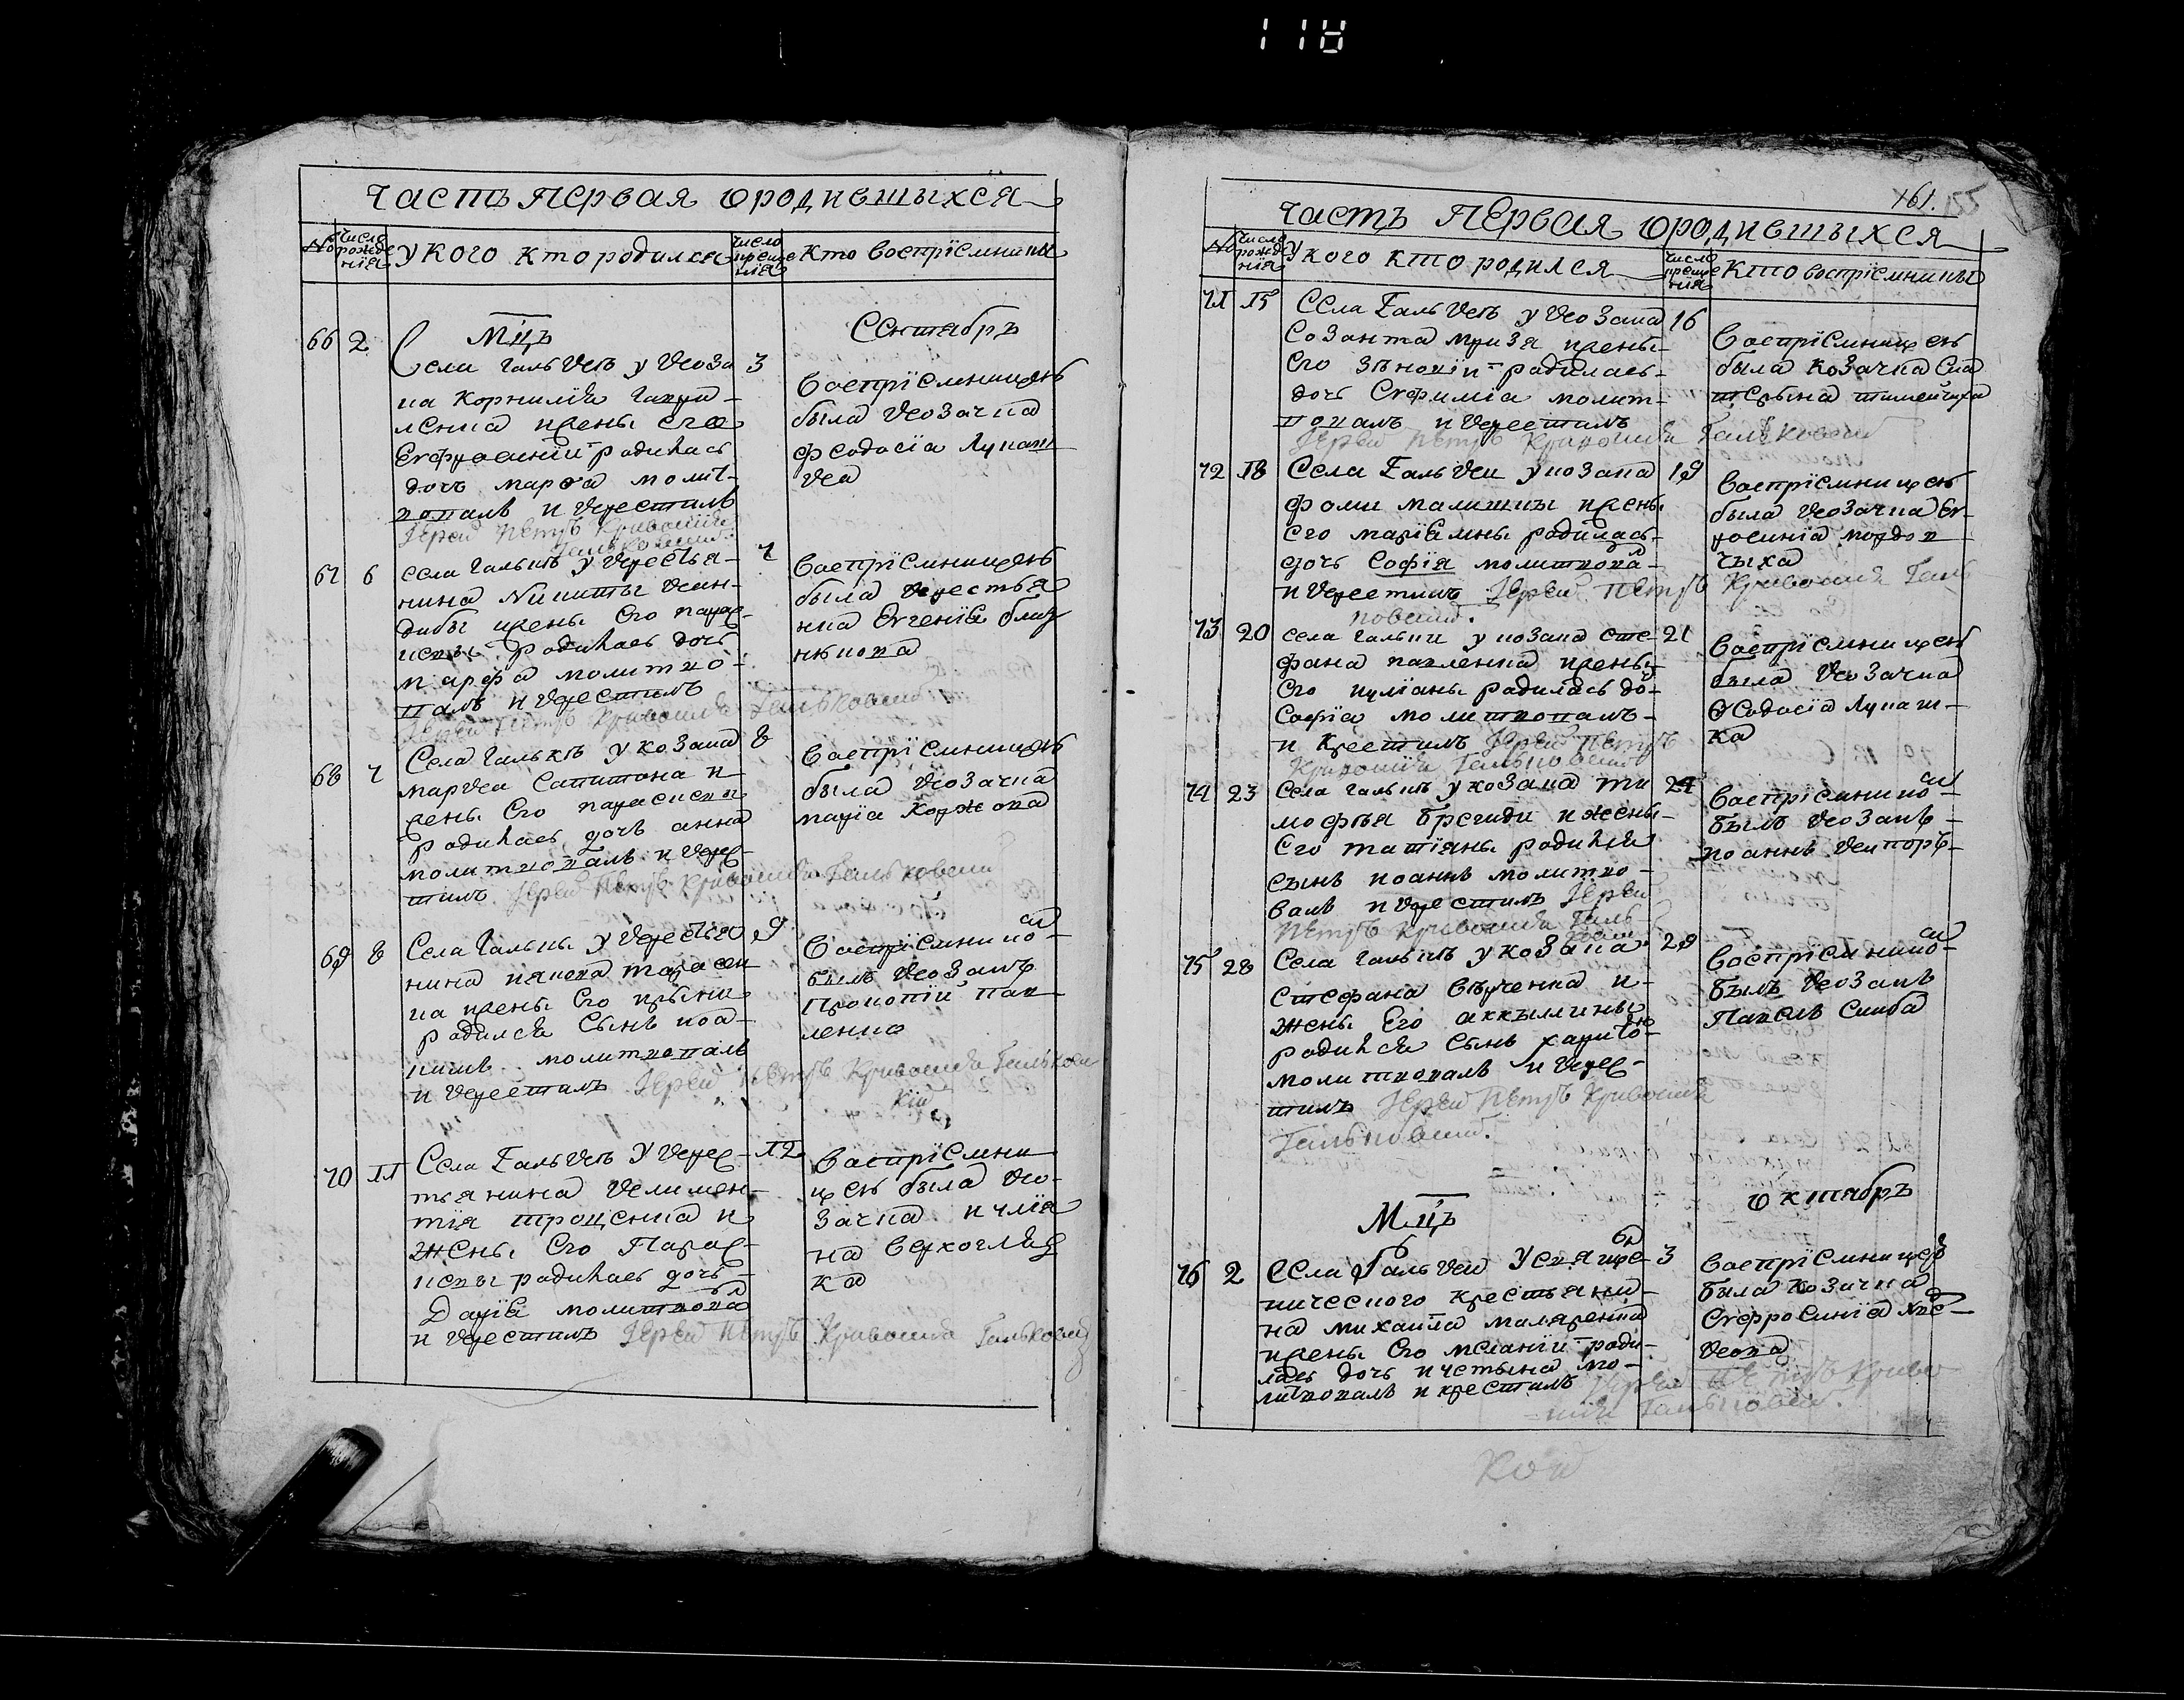 118
часть Первая о родившыхся
№ число рожде нїя у кого кто родился число креще нїя кто воспрїемники
Мцъ Сентябрь
66 2 Села галькъ у коза 3
ка Корнилїя гаври-
ленка и жены его
Евфросинїи родилась
дочь марѳа молит-
вовалъ и крестилъ
Їерей Петръ Кривошїя
Гальковский
воспрїемницею
была козачка
феодосїа лупаш
ка
67 6 села галькъ у крестья- 7
нина Никиты
жены его парас-
кевы родилась дочь
марфа молитво-
валъ и крестилъ
Їерей Петръ Кривошїя Гальковский
воспрїемницею
была крестья
нка Евгенїя
68 7 Села галькъ у козака 8
марка и
жены его параскевы
родилась дочь анна
молитвовалъ и крес-
тилъ Їерей Петръ Кривошїя Гальковский
воспрїемницею
была козачка
марїа коржова
69 8 Села галькы у крестья 9
нина якова тарасен
ка жены его
родился сынъ iоа-
ннъ молитвовалъ
и крестилъ Їерей Петръ Кривошїя Гальковс
кїй
воспрїемнико-
былъ козакъ
Прокопїй пав
ленко
70 11 Села Галькъ у крес- 12
тьянина климен-
тїя троценка и
жены его Парас-
кевы родилась дочь
Дарїя молитвова
и крестилъ Їерей Петръ Кривошїя Гальковский
воспрїемни
цею была ко-
зачка їулїя
на верхогляд
ка
161. 155
часть Первая о родившыхся
№ число рожде нїя у кого кто родился число креще нїя кто воспрїемникы
71 15 Села Галькъ у козака 16
Созонта жены-
его Зѣновїи родилась-
дочь Евфимїа молит-
вовалъ и крестилъ
Їерей Петръ Кривошїя Гальковский
воспрїемницею
была козачка
72 18 Села Гальки у козака 19
фомы малишки жены
его марїямны родилась-
дочь Софїя молитвова-
и крестилъ Їерей Петръ Кривошїя Галь
ковский.
воспрїемницею
была козачка Ев-
чыха
73 20 села гальки у козака сте- 21
фана павленка жены-
его иулїаны родилась до-
Софїа молитвовалъ-
и крестилъ Їерей Петръ
Кривошїя Гальковский
воспрїемницею
была козачка
Ѳеодосїа лупаш-
ка
74 23 Села галькъ у козака ти 24
мофѣя брегиди и жены-
его татїаны родился
сынъ иоаннъ молитво-
валъ и крестилъ Їерей
Петръ Кривошїя Галь
воспрїемнико-
былъ козакъ-
иоаннъ
75 28 Села галькъ у козака 29
Стефана и-
жены его аккылины
родился сынъ харито-
молитвовалъ и крес-
тилъ Їерей Петръ Кривошїя
Гальковский.
воспрїемнико-
былъ козакъ
Павелъ Скиба
Мцъ Октябрь
76 2 Села Гальки у священ- 3
нического крестьяни-
на михаила маляренка
жены его меланїи роди-
лась дочь иустына мо-
литвовалъ и крестилъ Їерей Петръ Криво
шїя Гальковский.
воспрїемницею
была козачка
Евфросинїа
кова
кой